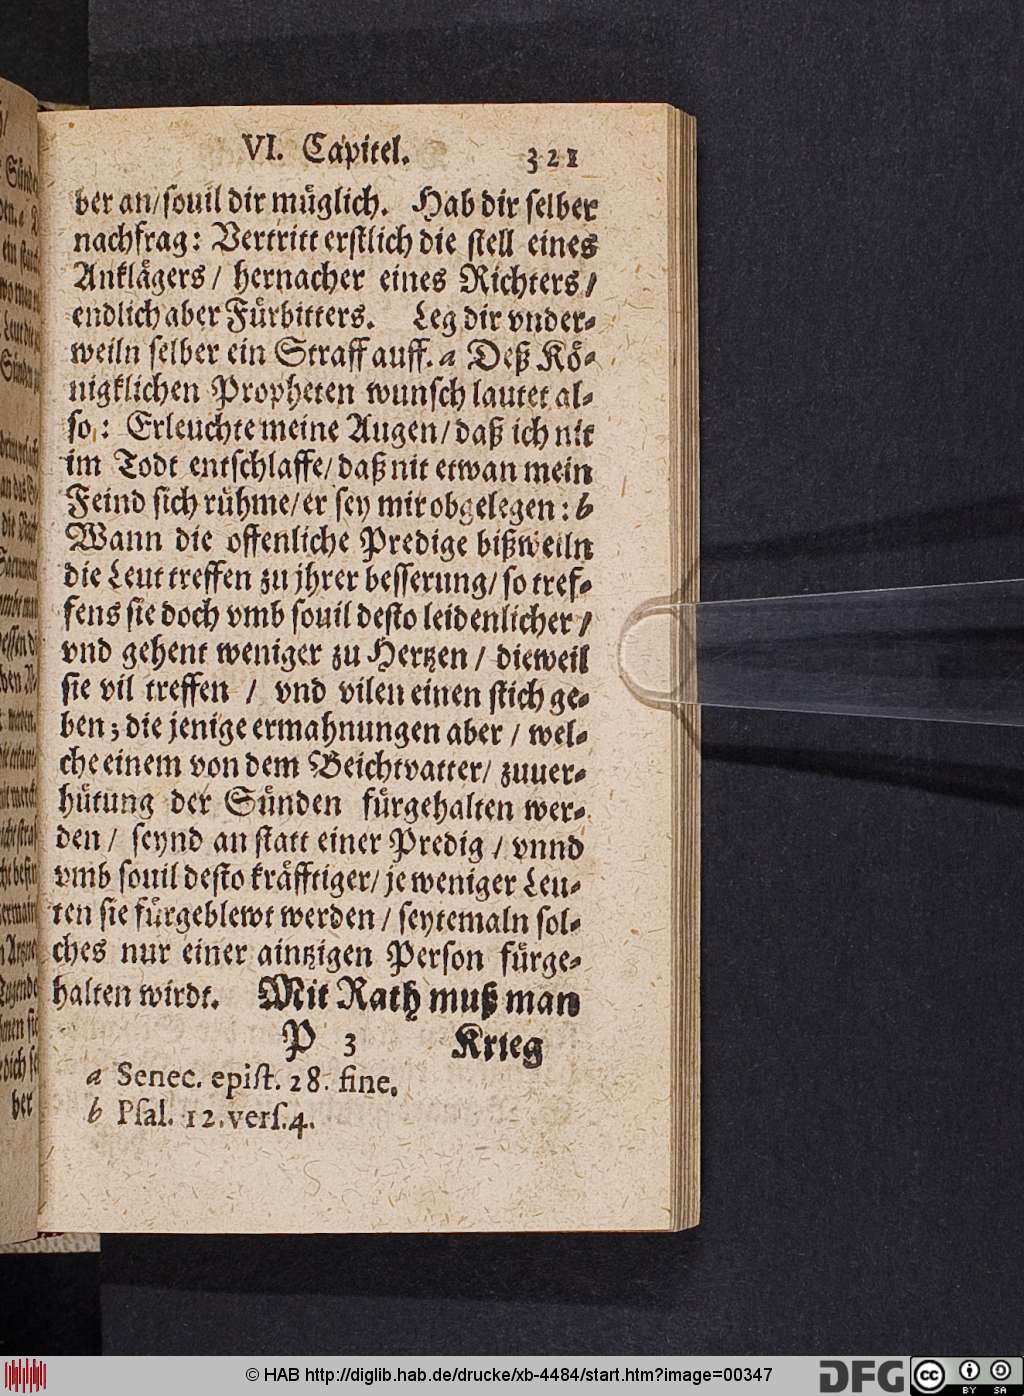 VI. Capitel. 321
ber an/souil dir müglich. Hab dir selber
nachfrag: Vertritt erstlich die stell eines
Anklägers/ hernacher eines Richters/
endlich aber Fürbitters. Leg dir vnder-
weiln selber ein Straff auff. a Deß Kö-
nigklichen Propheten wunsch lautet al-
so: Erleuchte meine Augen/daß ich nit
im Todt entschlaffe/daß nit etwan mein
Feind sich rühme/er sey mir obgelegen: b
Wann die offenliche Predige bißweiln
die Leut treffen zu jhrer besserung/so tref-
fens sie doch vmb souil desto leidenlicher/
vnd gehent weniger zu Hertzen/ dieweil
sie vil treffen / vnd vilen einen stich ge-
ben; die jenige ermahnungen aber/ wel-
che einem von dem Beichtvatter/ zuuer-
hütung der Sünden fürgehalten wer-
den/ seynd an statt einer Predig/ vnnd
vmb souil desto kräfftiger/je weniger Leu-
ten sie fürgeblewt werden/ seytemaln sol-
ches nur einer aintzigen Person fürge-
halten wirdt. Mit Rath muß man
P 3 Krieg
a Senec. epist. 28. fine.
b Psal. 12. vers. 4.
ber
© HAB http://diglib.hab.de/drucke/xb-4484/start.htm?image=00347
DFG
cc BY SA